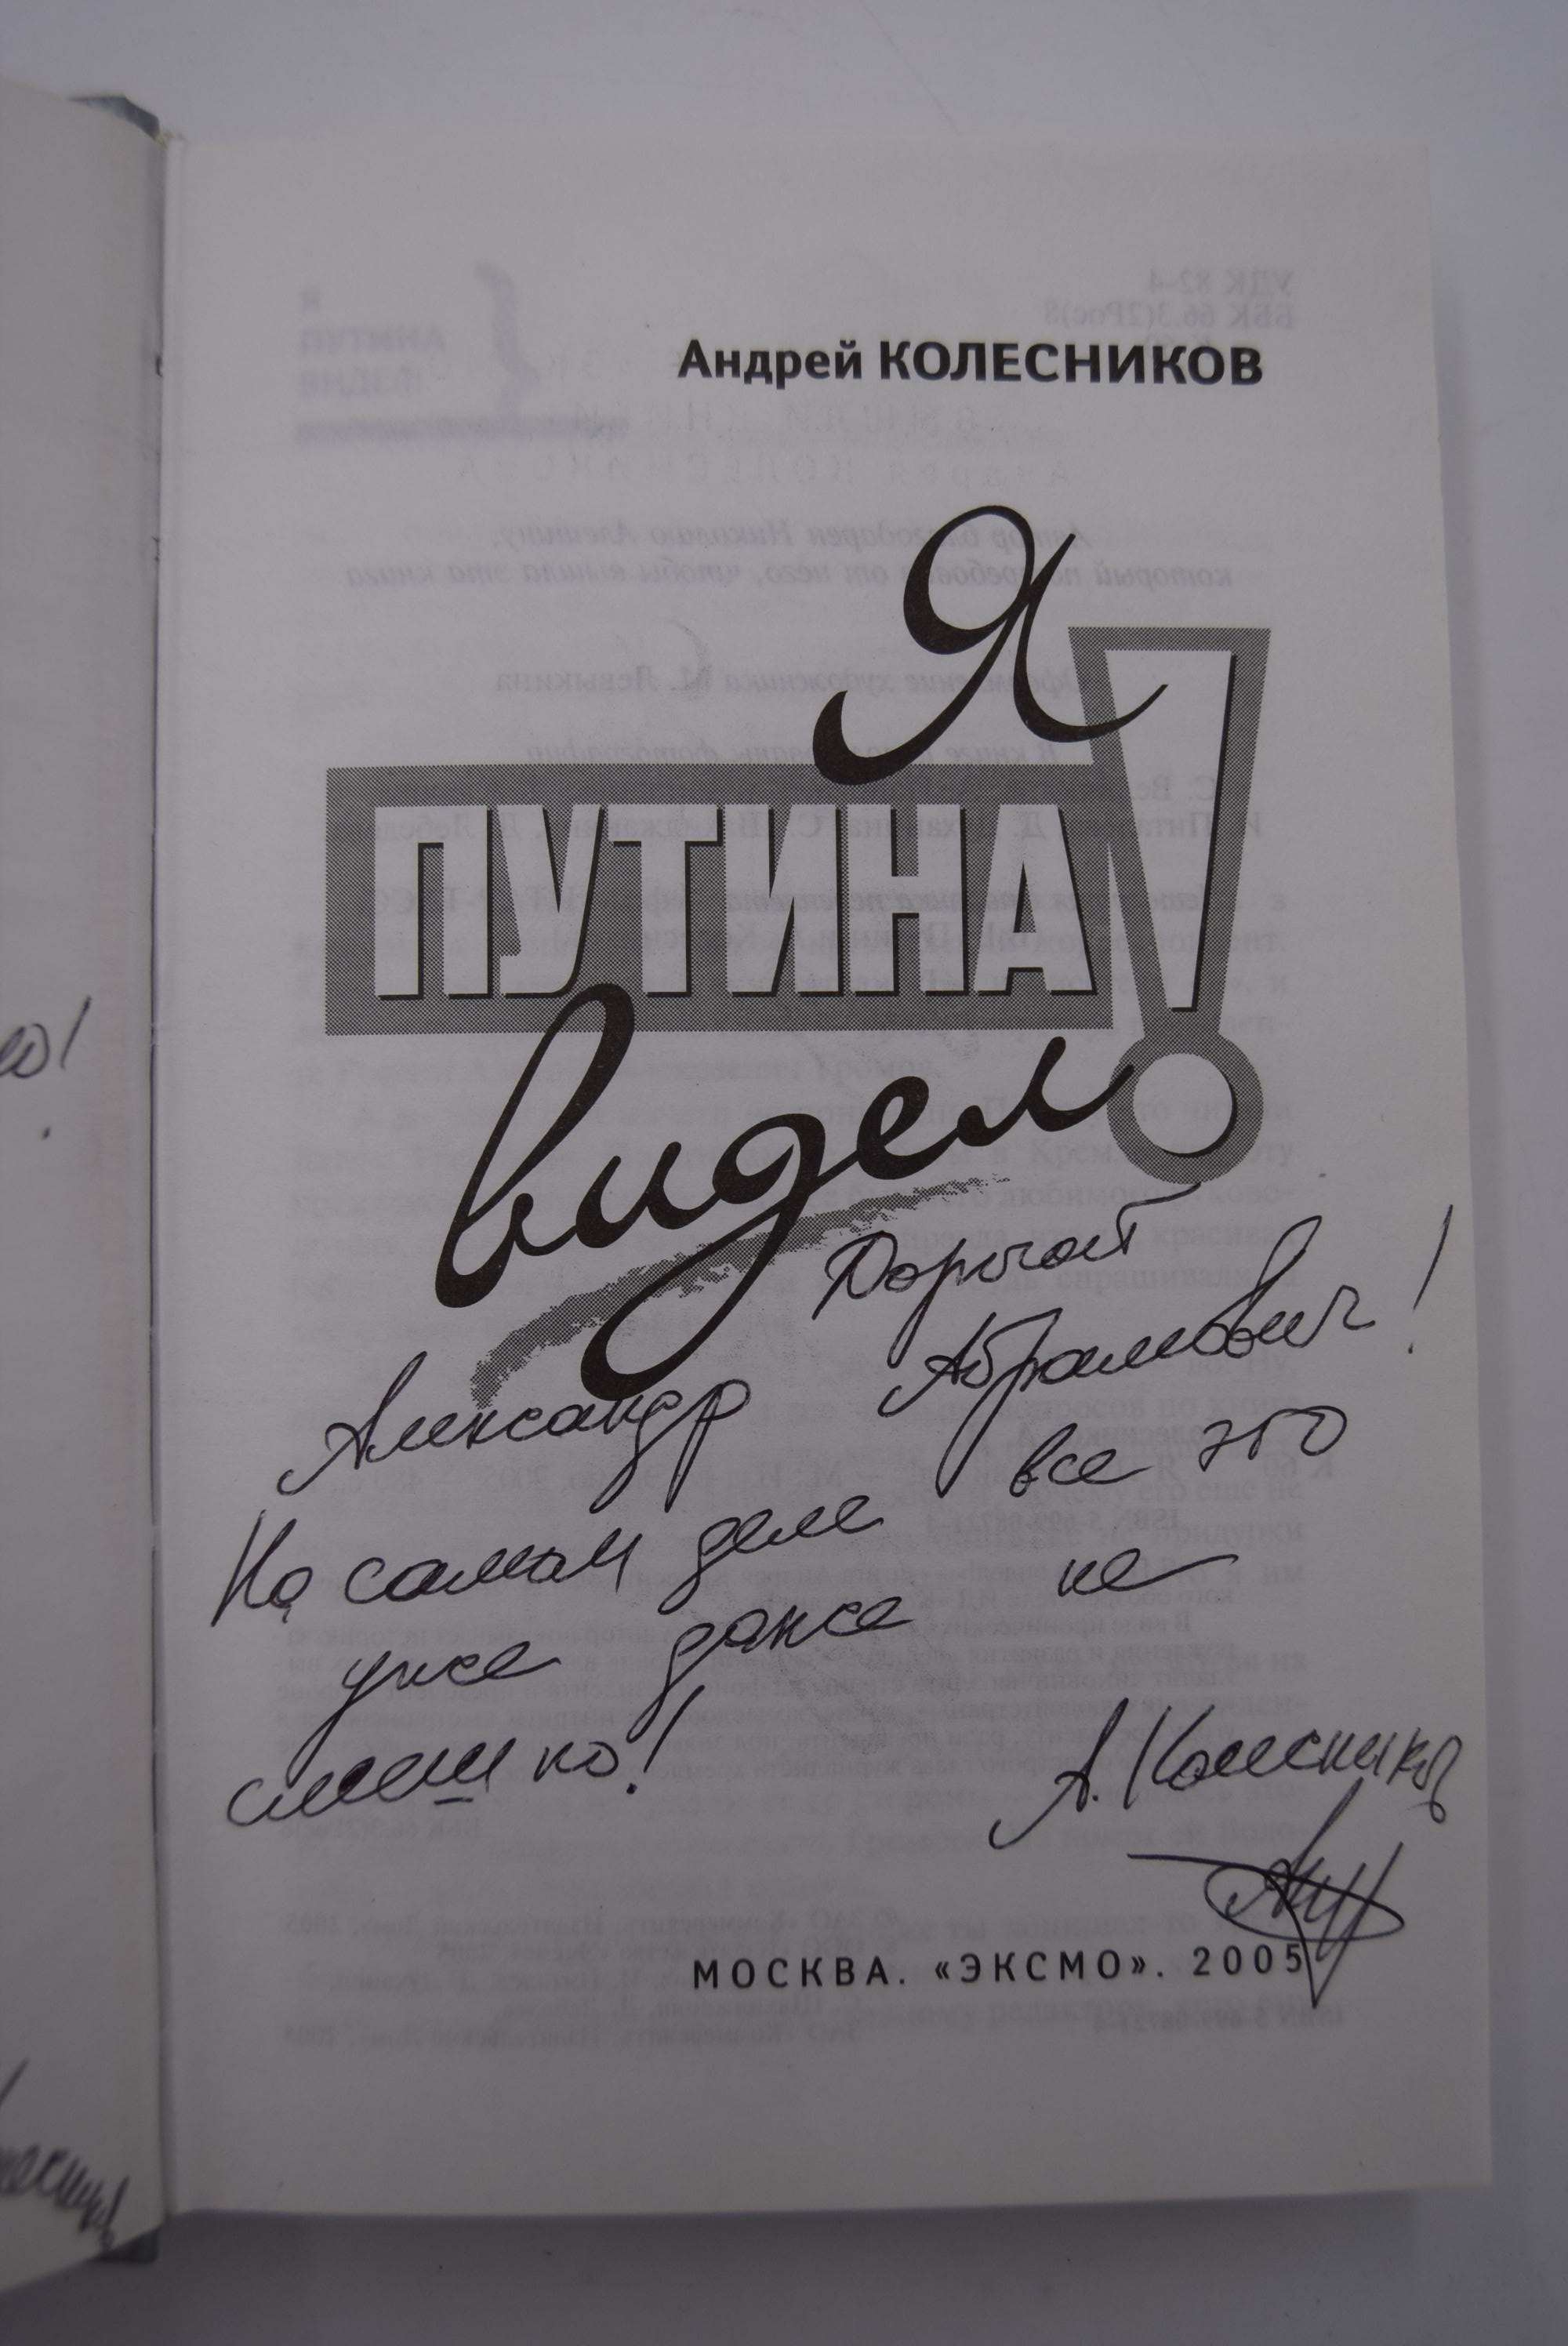 Андрей КОЛЕСНИКОВ
Я
ПУТИНА
видел!
Дорогой
Александр Абрамович!
На самом деле все это
уже даже не
смешно!
А. Колесников
МОСКВА. «ЭКСМО». 2005